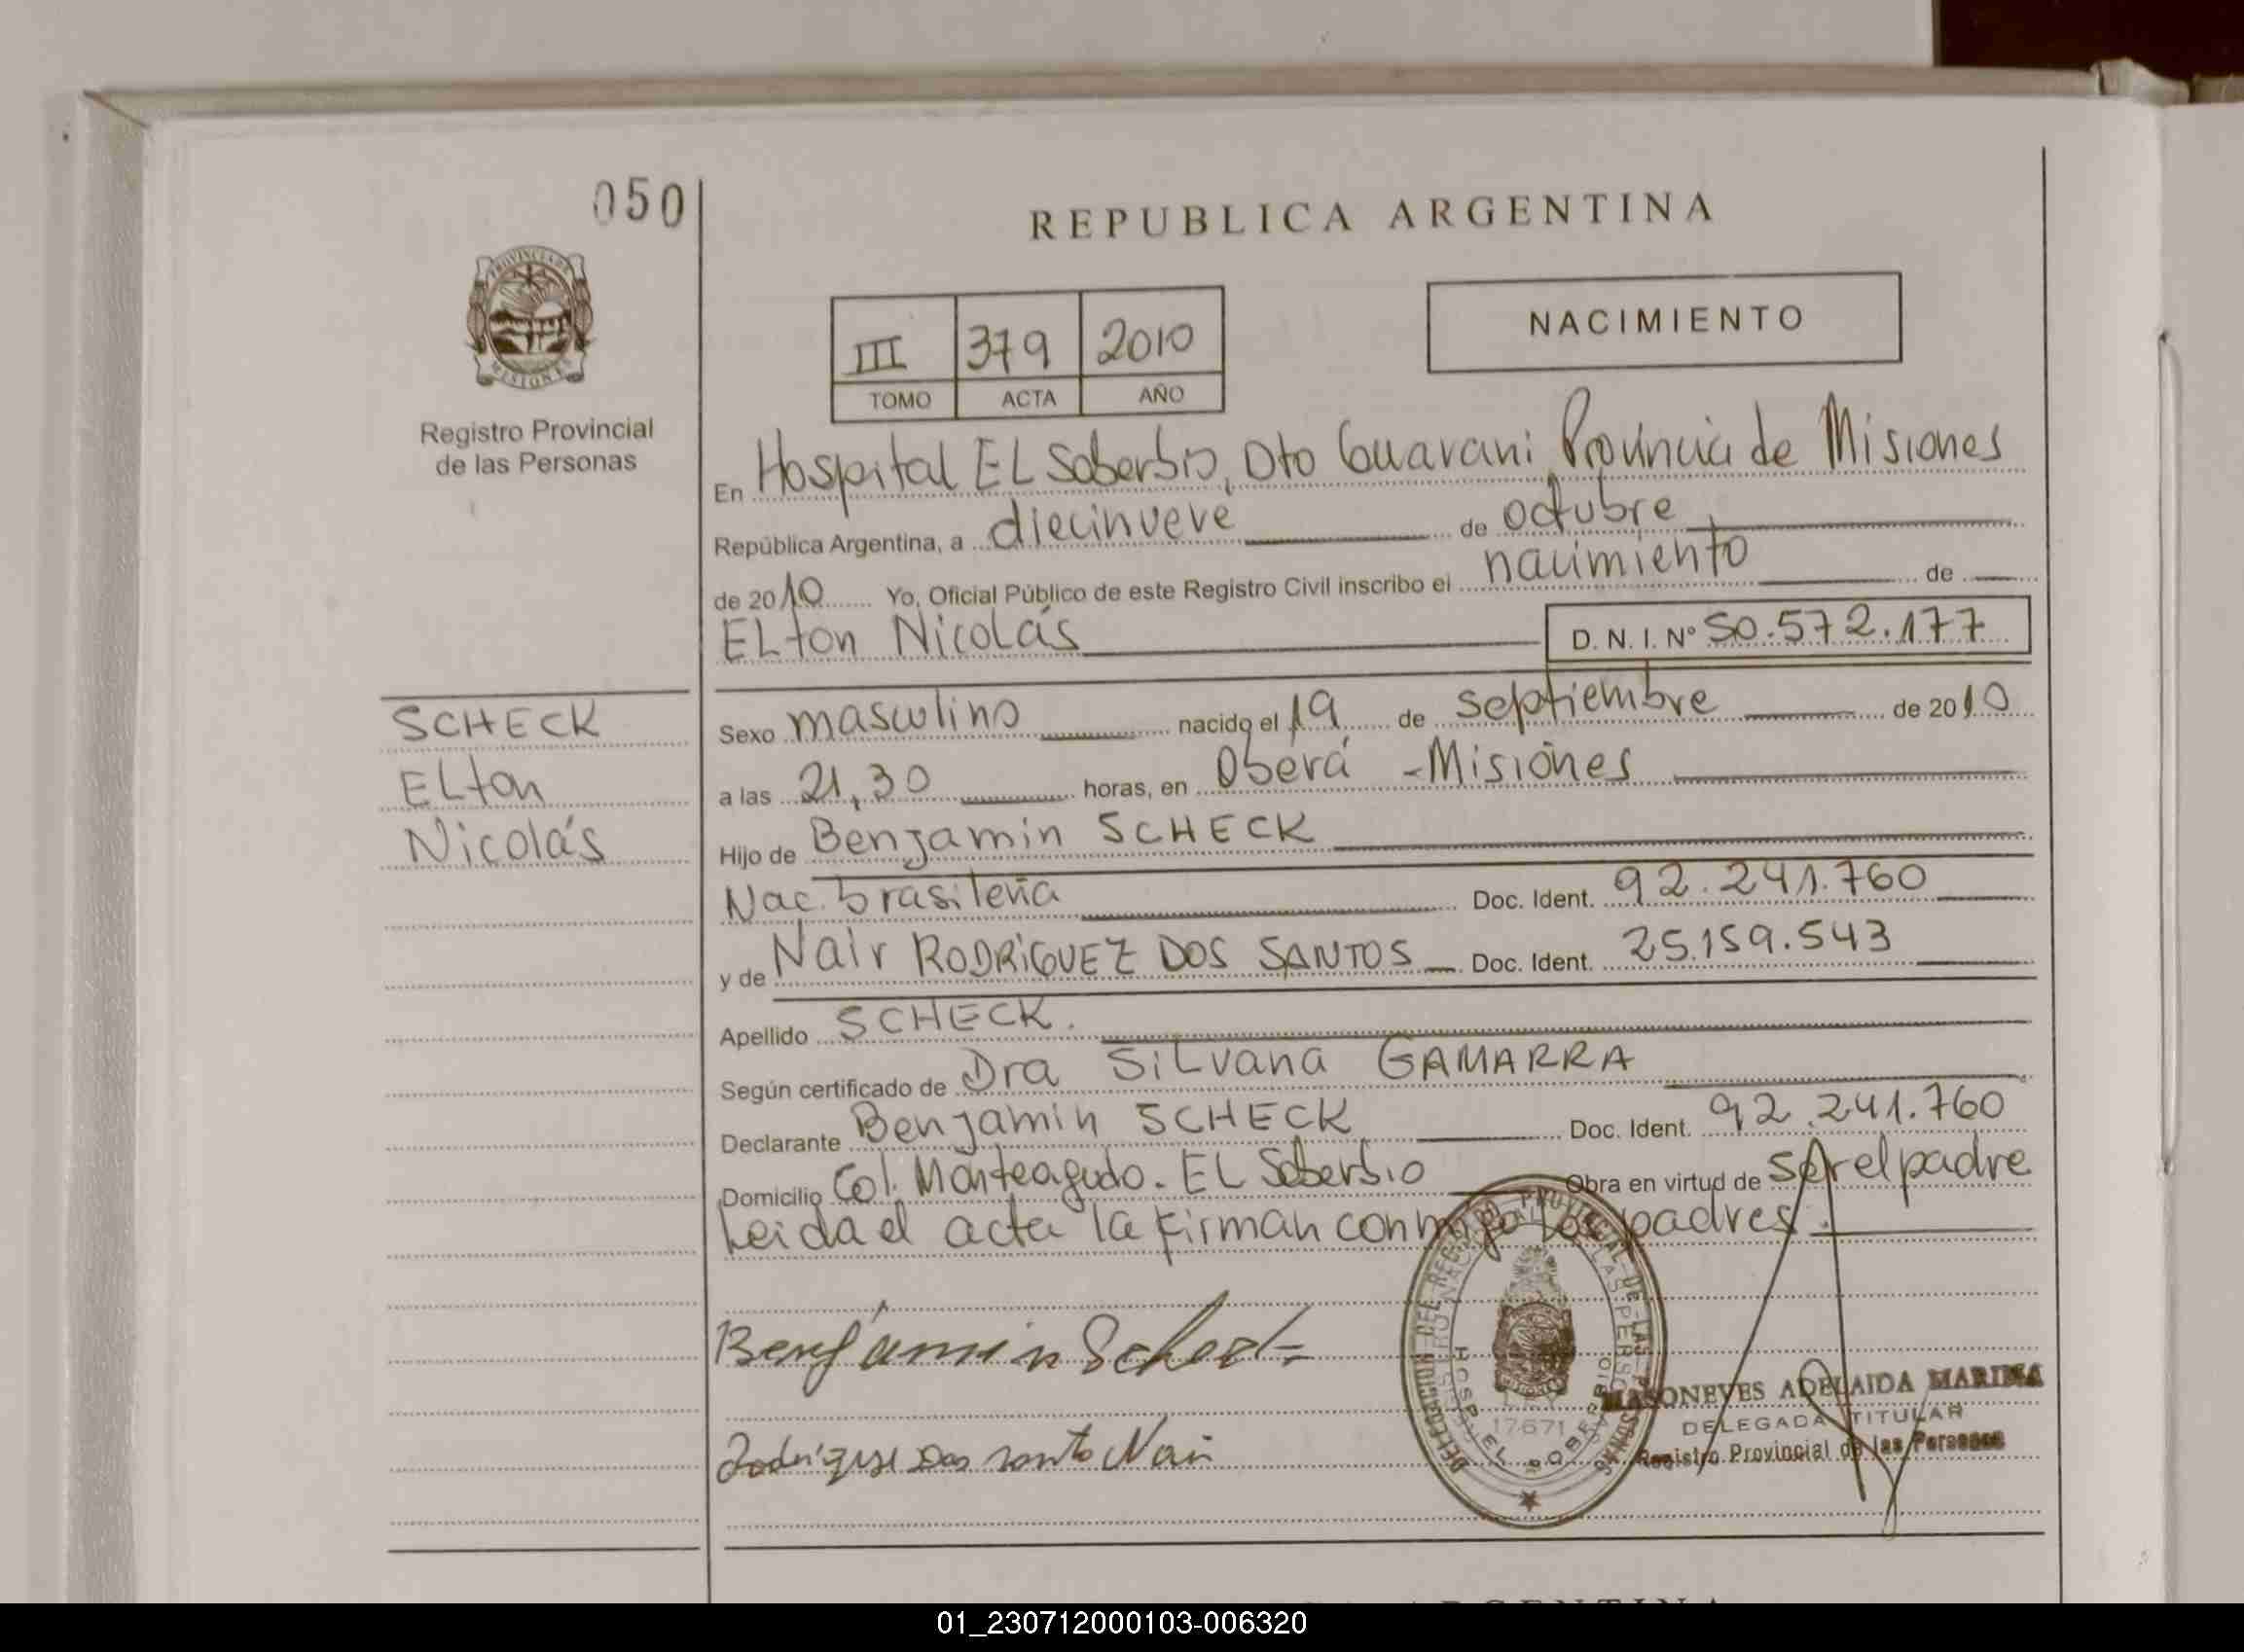 050
REPUBLICA ARGENTINA
PROVINCIA DE
MISIONES
Registro Provincial
de las Personas
III 379 2010
TOMO ACTA AÑO
NACIMIENTO
En Hospital EL Soberbio, Dto Guarani Provincia de Misiones
República Argentina, a diecinueve de octubre
de 2010 Yo, Oficial Público de este Registro Civil inscribo el nacimiento de
ELton Nicolás D. N. I. Nº 50.572.177
SCHECK
ELton
Nicolás
Sexo masculino nacido el 19 de septiembre de 2010
a las 21,30 horas, en Oberá - Misiones
Hijo de Benjamin SCHECK
Nac. brasileña Doc. Ident. 92.241.760
y de Nair RODRIGUEZ DOS SANTOS Doc. Ident. 25.159.543
Apellido SCHECK.
Según certificado de Dra SiLvana GAMARRA
Declarante Benjamin SCHECK Doc. Ident. 92.241.760
Domicilio Col. Monteagudo. EL Soberbio Obra en virtud de ser el padre
Leida el acta la firman conmigo los padres.
DELEGACION DEL REGISTRO PROVINCIAL DE LAS PERSONAS
HOSP. EL SOBERBIO
17671
Benjamin Scheck
Rodriguez Dos santo Nair
ADELAIDA MARINA
DELEGADA TITULAR
Registro Provincial de las Personas
ARGENTINA
01_230712000103-006320